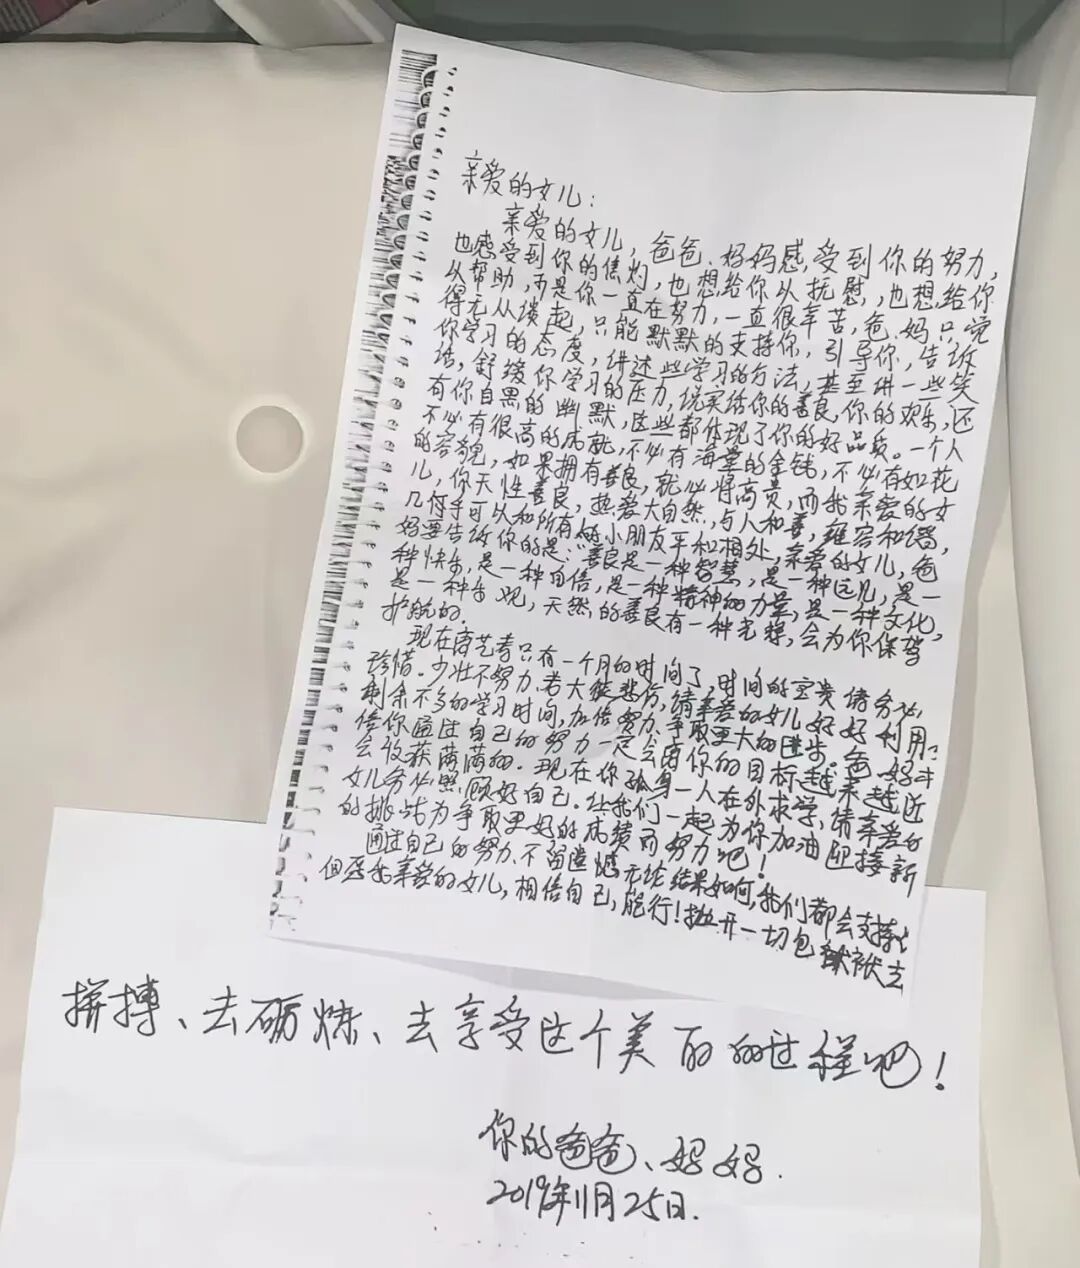 亲爱的女儿：
亲爱的女儿，爸爸、妈妈感受到你的努力，
也感受到你的焦灼，也想给你以抚慰，也想给你
以帮助，可是你一直在努力，一直很辛苦，爸、妈只觉
得无从谈起，只能默默的支持你，引导你，告诉
你学习的态度，讲述些学习的方法，甚至讲一些笑
话，舒缓你学习的压力，说实话你的善良，你的欢乐，还
有你自黑的幽默，这些都体现了你的好品质。一个人
不必有很高的成就，不必有海量的金钱，不必有如花
的容貌，如果拥有善良，就必将高贵，而我亲爱的女
儿，你天性善良，热爱大自然，与人和善，雍容和谐，
几乎可以和所有的小朋友平和相处，亲爱的女儿，爸
妈要告诉你的是：善良是一种智慧，是一种远见，是一
种快乐，是一种自信，是一种精神的力量，是一种文化，
是一种乐观，天然的善良有一种光辉，会为你保驾
护航的．
现在离艺考只有一个月的时间了，时间的宝贵请务必
珍惜．少壮不努力、老大徒悲伤，请亲爱的女儿好好利用
剩余不多的学习时间，加倍努力、争取更大的进步。爸妈
信你通过自己的努力一定会离你的目标越来越近
会收获满满的．现在你孤身一人在外求学、请亲爱的
女儿务必照顾好自己．让我们一起为你加油迎接新
的挑战为争取更好的成绩而努力吧！
通过自己的努力、不留遗憾无论结果如何，我们都会支持
但愿我亲爱的女儿，相信自己，能行！抛开一切包袱去
拼搏、去砺炼、去享受这个美丽的过程吧！
你的爸爸、妈妈．
2019年11月25日．